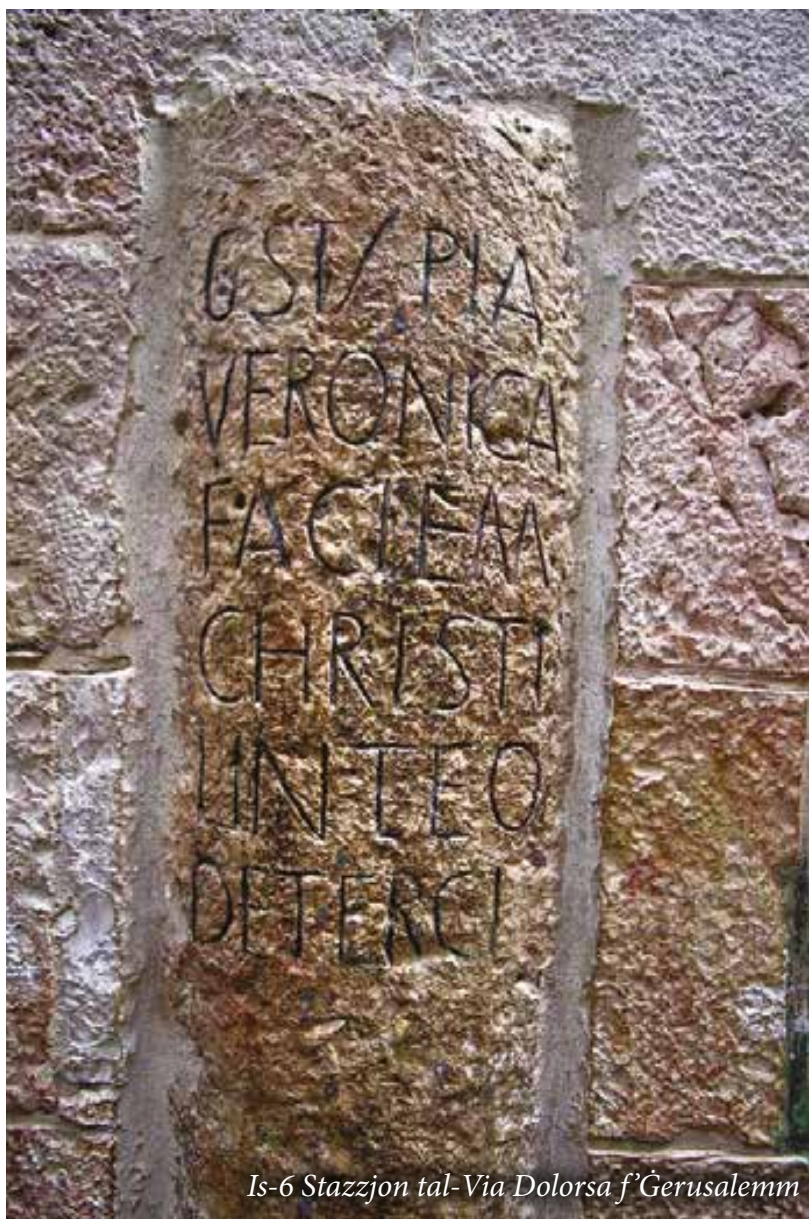 6 ST/ PIA
VERONICA
FACIEM
CHRISTI
LINTEO
DETERCI
Is-6 Stazzjon tal-Via Dolorsa f’Ġerusalemm